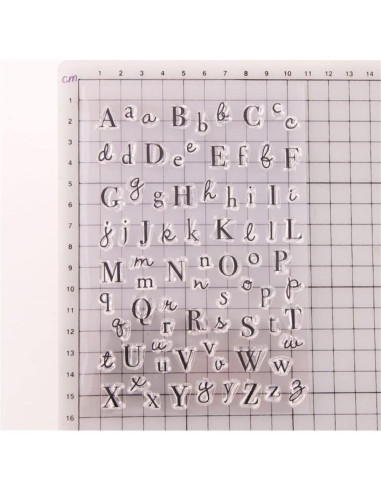 cm 1 2 3 4 5 6 7 8 9 10 11 12 13 14
1
2 A a a B b b C c c
3
4 d d D e e E f f F
5
6 G g g H h h i I i
7
8 j j J k k K l l L
9 M m m N n n O o o P
10
11 q Q r s p p
12 q r R s S t T
13 t U u u V v v W w
14
15 X x x Y y y Z z z
16